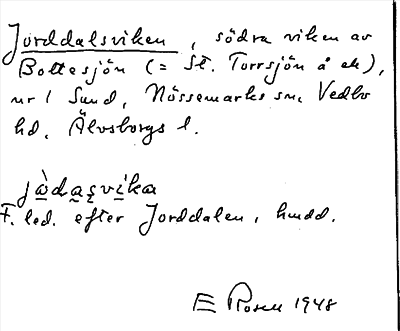 Jorddalsviken, södra viken av
Bottesjön (= St. Torrsjön å ek),
nr 1 Sund, Nössemarks sn, Vedbo
hd, Älvsborgs l.
jòdaṣvika
F. led. efter Jorddalen, hmdd.
E Rosen 1948